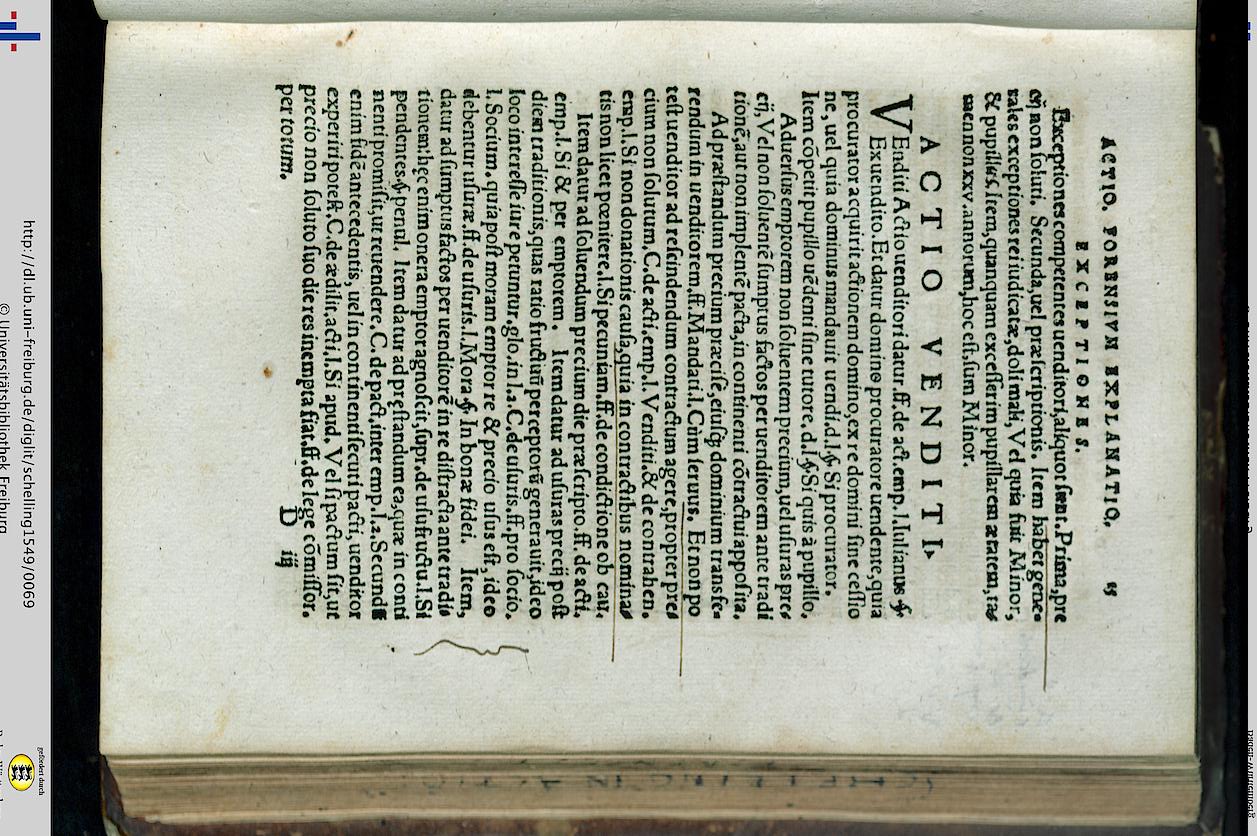 ACTIO. FORENSIVM EXPLANATIO.
EXCEPTIONES.
Exceptiones competentes uenditori, aliquot sunt. Prima, pre
cij non soluti. Secunda, uel præscriptionis. Item habet gene-
rales exceptiones rei iudicatæ, doli mali, Vel quia fuit Minor,
& pupillus. Item, quanquam excesserim pupillarem ætatem, ta-
men non xxv. annorum, hoc est, sum Minor.
ACTIO VENDITI.
VEnditi Actio uenditori datur. ff. de act. emp. l. Iulianus §.
Ex uendito. Et datur domino procuratore uendente, quia
procurator acquirit actionem domino, ex re domini sine cessio
ne, uel quia dominus mandauit uendi. d. l. §. Si procurator.
Item cõpetit pupillo uẽdenti sine tutore. d. l. §. Si quis à pupillo.
Aduersus emptorem non soluentem precium, uel usuras pre-
cij, Vel non soluentẽ sumptus factos per uenditorem ante tradi
tionẽ, aut non implentẽ pacta, in continenti cõtractui apposita.
Ad præstandum precium præcise, eiusq́; dominium transfe-
rendum in uenditorem. ff. Mandati. l. Cùm seruus. Et non po
test uenditor ad rescindendum contractum agere, propter pre-
cium non solutum, C. de acti. emp. l. Venditi. & de contrahen.
emp. l. Si non donationis causa, quia in contractibus nomina-
tis non licet pœnitere. l. Si pecuniam. ff. de condictione ob cau.
Item datur ad soluendum precium die præscripto. ff. de acti.
emp. l. Si & per emptorem. Item datur ad usuras precij post
diem traditionis, quas ratio fructuũ perceptorũ generauit, ideo
loco interesse iure petuntur. glo. in l. 2. C. de usuris. ff. pro socio.
l. Socium. quia post moram emptor re & precio usus est, ideo
debentur usuræ. ff. de usuris. l. Mora. §. In bonæ fidei. Item,
datur ad sumptus factos per uenditorẽ in re distracta ante tradi-
tionem: hęc enim onera emptor agnoscit, supr. de usufructu. l. Si
pendentes. §. penul. Item datur ad pręstandum ea, quæ in conti
nenti promisit, ut reuendere. C. de pact. inter emp. l. 2. Secundũ
enim fidẽ antecedentis, uel in continenti secuti pacti, uenditor
experiri potest. C. de ædilit. acti. l. Si apud. Vel si pactum sit, ut
precio non soluto suo die res inempta fiat. ff. de lege cõmissor.
per totum.
D iij
http://dl.ub.uni-freiburg.de/diglit/schelling1549/0069
© Universitätsbibliothek Freiburg
gefördert durch